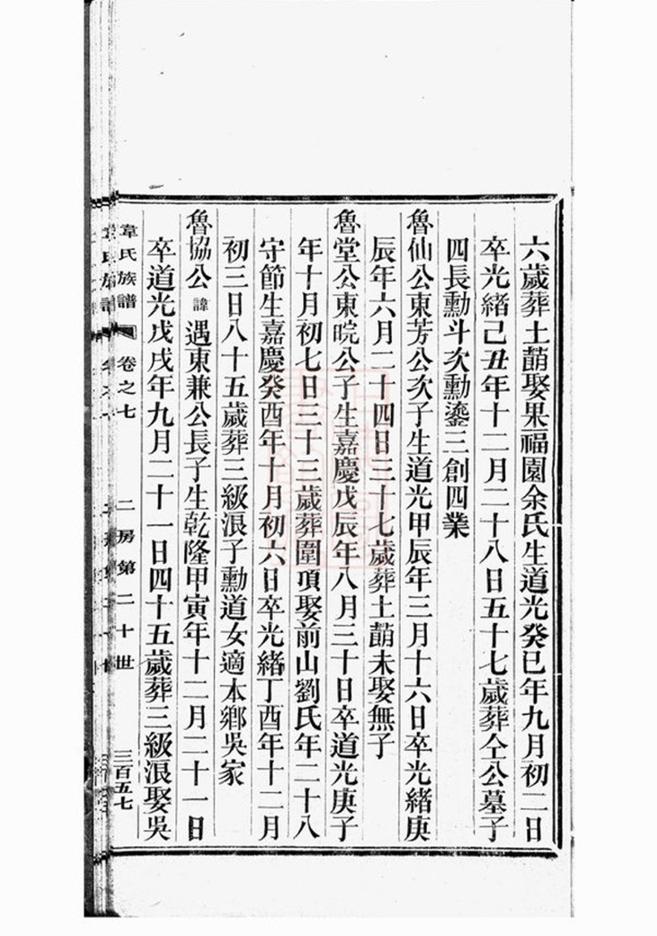 六歲葬土萠娶果福園余氏生道光癸巳年九月初二日
卒光緒己丑年十二月二十八日五十七歲葬仝公墓子
四長勳斗次勳鎏三創四業
魯仙公東芳公次子生道光甲辰年三月十六日卒光緒庚
辰年六月二十四日三十七歲葬土萠未娶無子
魯堂公東晥公子生嘉慶戊辰年八月三十日卒道光庚子
年十月初七日三十三歲葬圍項娶前山劉氏年二十八
守節生嘉慶癸酉年十月初六日卒光緒丁酉年十二月
初三日八十五歲葬三級浪子勳道女適本鄉吳家
魯協公諱遇東兼公長子生乾隆甲寅年十二月二十一日
卒道光戊戌年九月二十一日四十五歲葬三級浪娶吳
韋氏族譜 卷之七 二房第二十世 三百五七